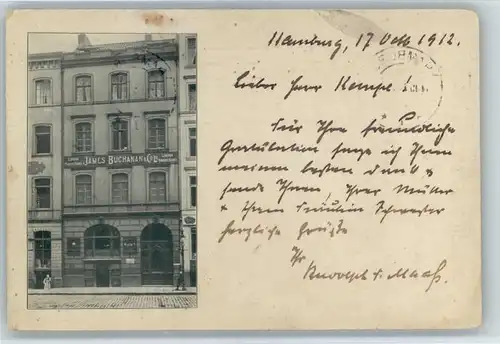 Hamburg, 17 Octb 1912.
Lieber Herr Kempe!
Für Ihre freundliche
Gratulation sage ich Ihnen
meinen besten Dank &
sende Ihnen, Ihrer Mutter
& Ihrem Fräulein Schwester
herzliche Grüße
Ihr
Rudolph Maaß.
JAMES BUCHANAN & Co LTD